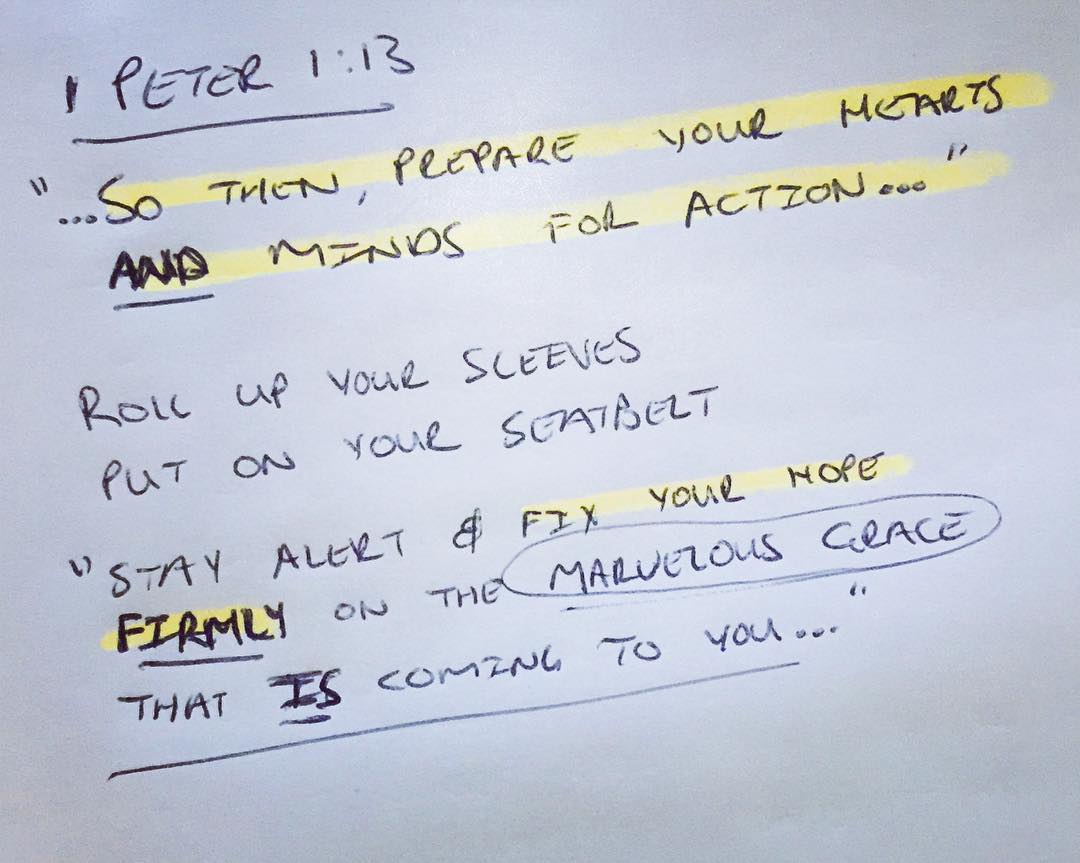 1 PETER 1:13
"...SO THEN, PREPARE YOUR HEARTS
AND MINDS FOR ACTION..."
ROLL UP YOUR SLEEVES
PUT ON YOUR SEATBELT
"STAY ALERT & FIX YOUR HOPE
FIRMLY ON THE MARVELOUS GRACE
THAT IS COMING TO YOU..."